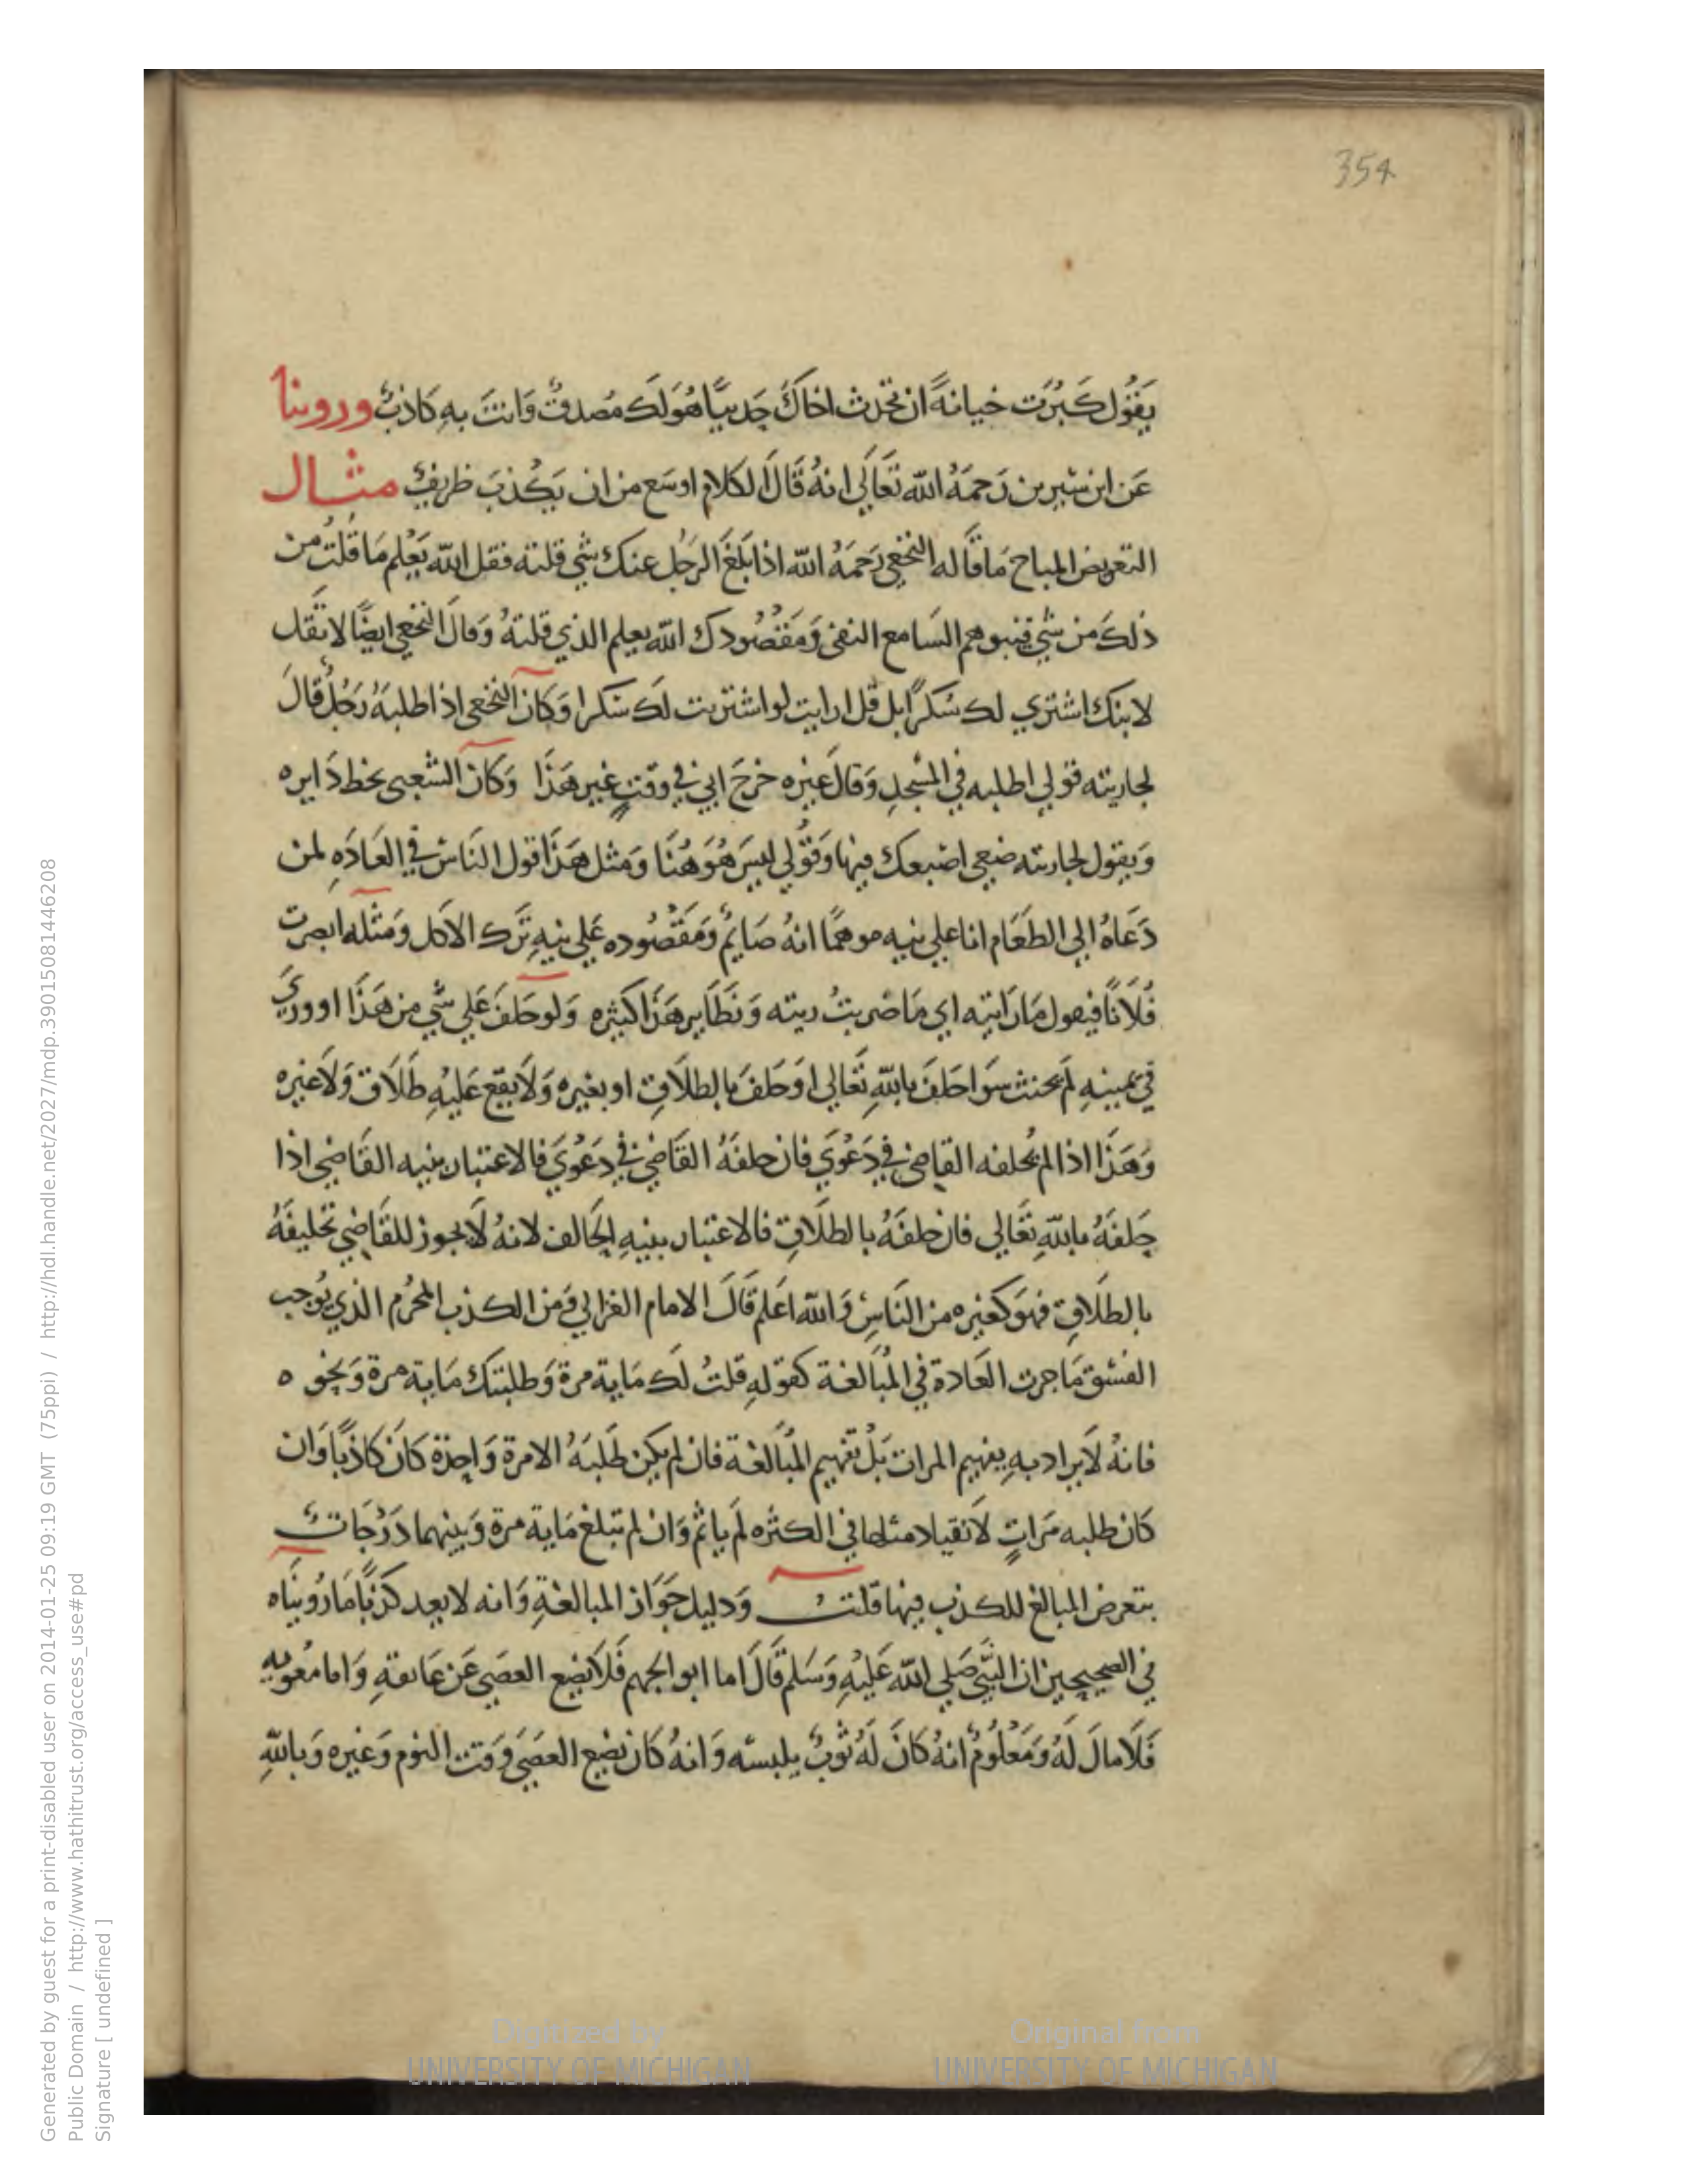 354
يَقُول كَبُرَت خيانةً ان تحدث اخاكَ حَديثًا هُوَلَك مُصدقٌ وَانتَ بهِ كَاذبٌ وروينا
عَن ابن سيرين رَحمَهُ الله تعَالَي انهُ قَالَ الكلام اوسَع من ان يَكذبَ ظريفٌ مثال
التعريض المباح مَا قَاله النخعي رَحمَهُ الله اذا بَلغَ الرجُل عنك شي قلته فقل الله يَعْلم مَا قُلتُ من
ذلكَ من شي فيتوهم السَامع النفي وَمَقصُودك الله يعلم الذي قلتهُ وَقالَ النخعي ايضًا لا تقَل
لابنك اشتري لك سُكرًا بل قل ارايت لو اشتريت لَك سُكرا وَكان النخعي اذا طلبهُ رَجُلٌ قالَ
لجاريته قولي اطلبه في المسْجدِ وَقالَ غيره خرَجَ ابي في وقتٍ غير هَذَا وَكان الشعبي يخط دَايره
وَيقول لجاريته ضعي اصبعك فيها وَقوُلي ليسَ هُوَ هُنَا وَمثل هَذَا قول النَاس في العَادَه لمن
دَعَاهُ الي الطعَام انا علي نيه موهمًا انهُ صَايمٌ وَمَقصُوده عَلي نيهِ تَرك الاكل وَمثله ابصرت
فُلَانًا فيقول مَا رَايته اي مَا ضربتُ ريته وَنَظَاير هَذَا كثيره وَلو حَلفَ عَلي شي من هَذَا او وريَ
في يمينهِ لم يحنث سَوا حَلفَ باللهِ تعَالي اوَحَلفَ بالطلَاقِ او بغيره وَلَا يقع عَليْهِ طَلَاق وَلَا غيره
وَهَذَا اذا لم يُحلفه القاضي في دَعْوَي فان حلفهُ القَاضي في دَعْوَي فالاعتبار بنيه القَاضي اذا
حَلفهُ باللهِ تعَالي فان حلفَهُ بالطلَاقِ فالاعتبار بنيهِ الحَالف لانهُ لَا يجوز للقَاضي تحليفَهُ
بالطلَاقِ فهوَ كغيره من النَاسِ وَالله اعَلم قَالَ الامام الغزالي وَمن الكذب المحرُم الذي يُوجب
الفسْق مَا جرت العَادة في المُبَالغة كقولهِ قلتُ لَك مَاية مرة وَطلبتك مَاية مرة وَنحوه
فانهُ لَا يراد بهِ يفهيم المرات بَلْ تفهيم المُبَالغة فان لم يكن طَلبَهُ الا مرة وَاحدَة كانَ كاذبًا وَان
كان طلبه مَراتٍ لَا تقياد مثلها في الكثره لَم ياثم وَان لم تبلغ مَاية مرة وَبينهما دَرَجَات
يتعرض المبالغ للكذب فيها قلت وَدليل جَوَاز المبالغةِ وَانه لا يعد كذبًا مَا رُوينَاه
في الصحيحين ان النَّبي صَلي الله عَليْهِ وَسَلم قَالَ اما ابوا لجهم فَلَا يضِع العصَي عَن عَاتقهِ وَاما معُويه
فَلَا مالَ لَهُ وَمَعْلُومٌ انهُ كانَ لَهُ ثوبٌ يلبسه وَانهُ كَان يَضع العصَي وَقت النوم وَغيره وَباللهِ
Digitized by
UNIVERSITY OF MICHIGAN
Original from
UNIVERSITY OF MICHIGAN
Generated by guest for a print-disabled user on 2014-01-25 09:19 GMT (75ppi) / http://hdl.handle.net/2027/mdp.39015081446208
Public Domain / http://www.hathitrust.org/access_use#pd
Signature [ undefined ]